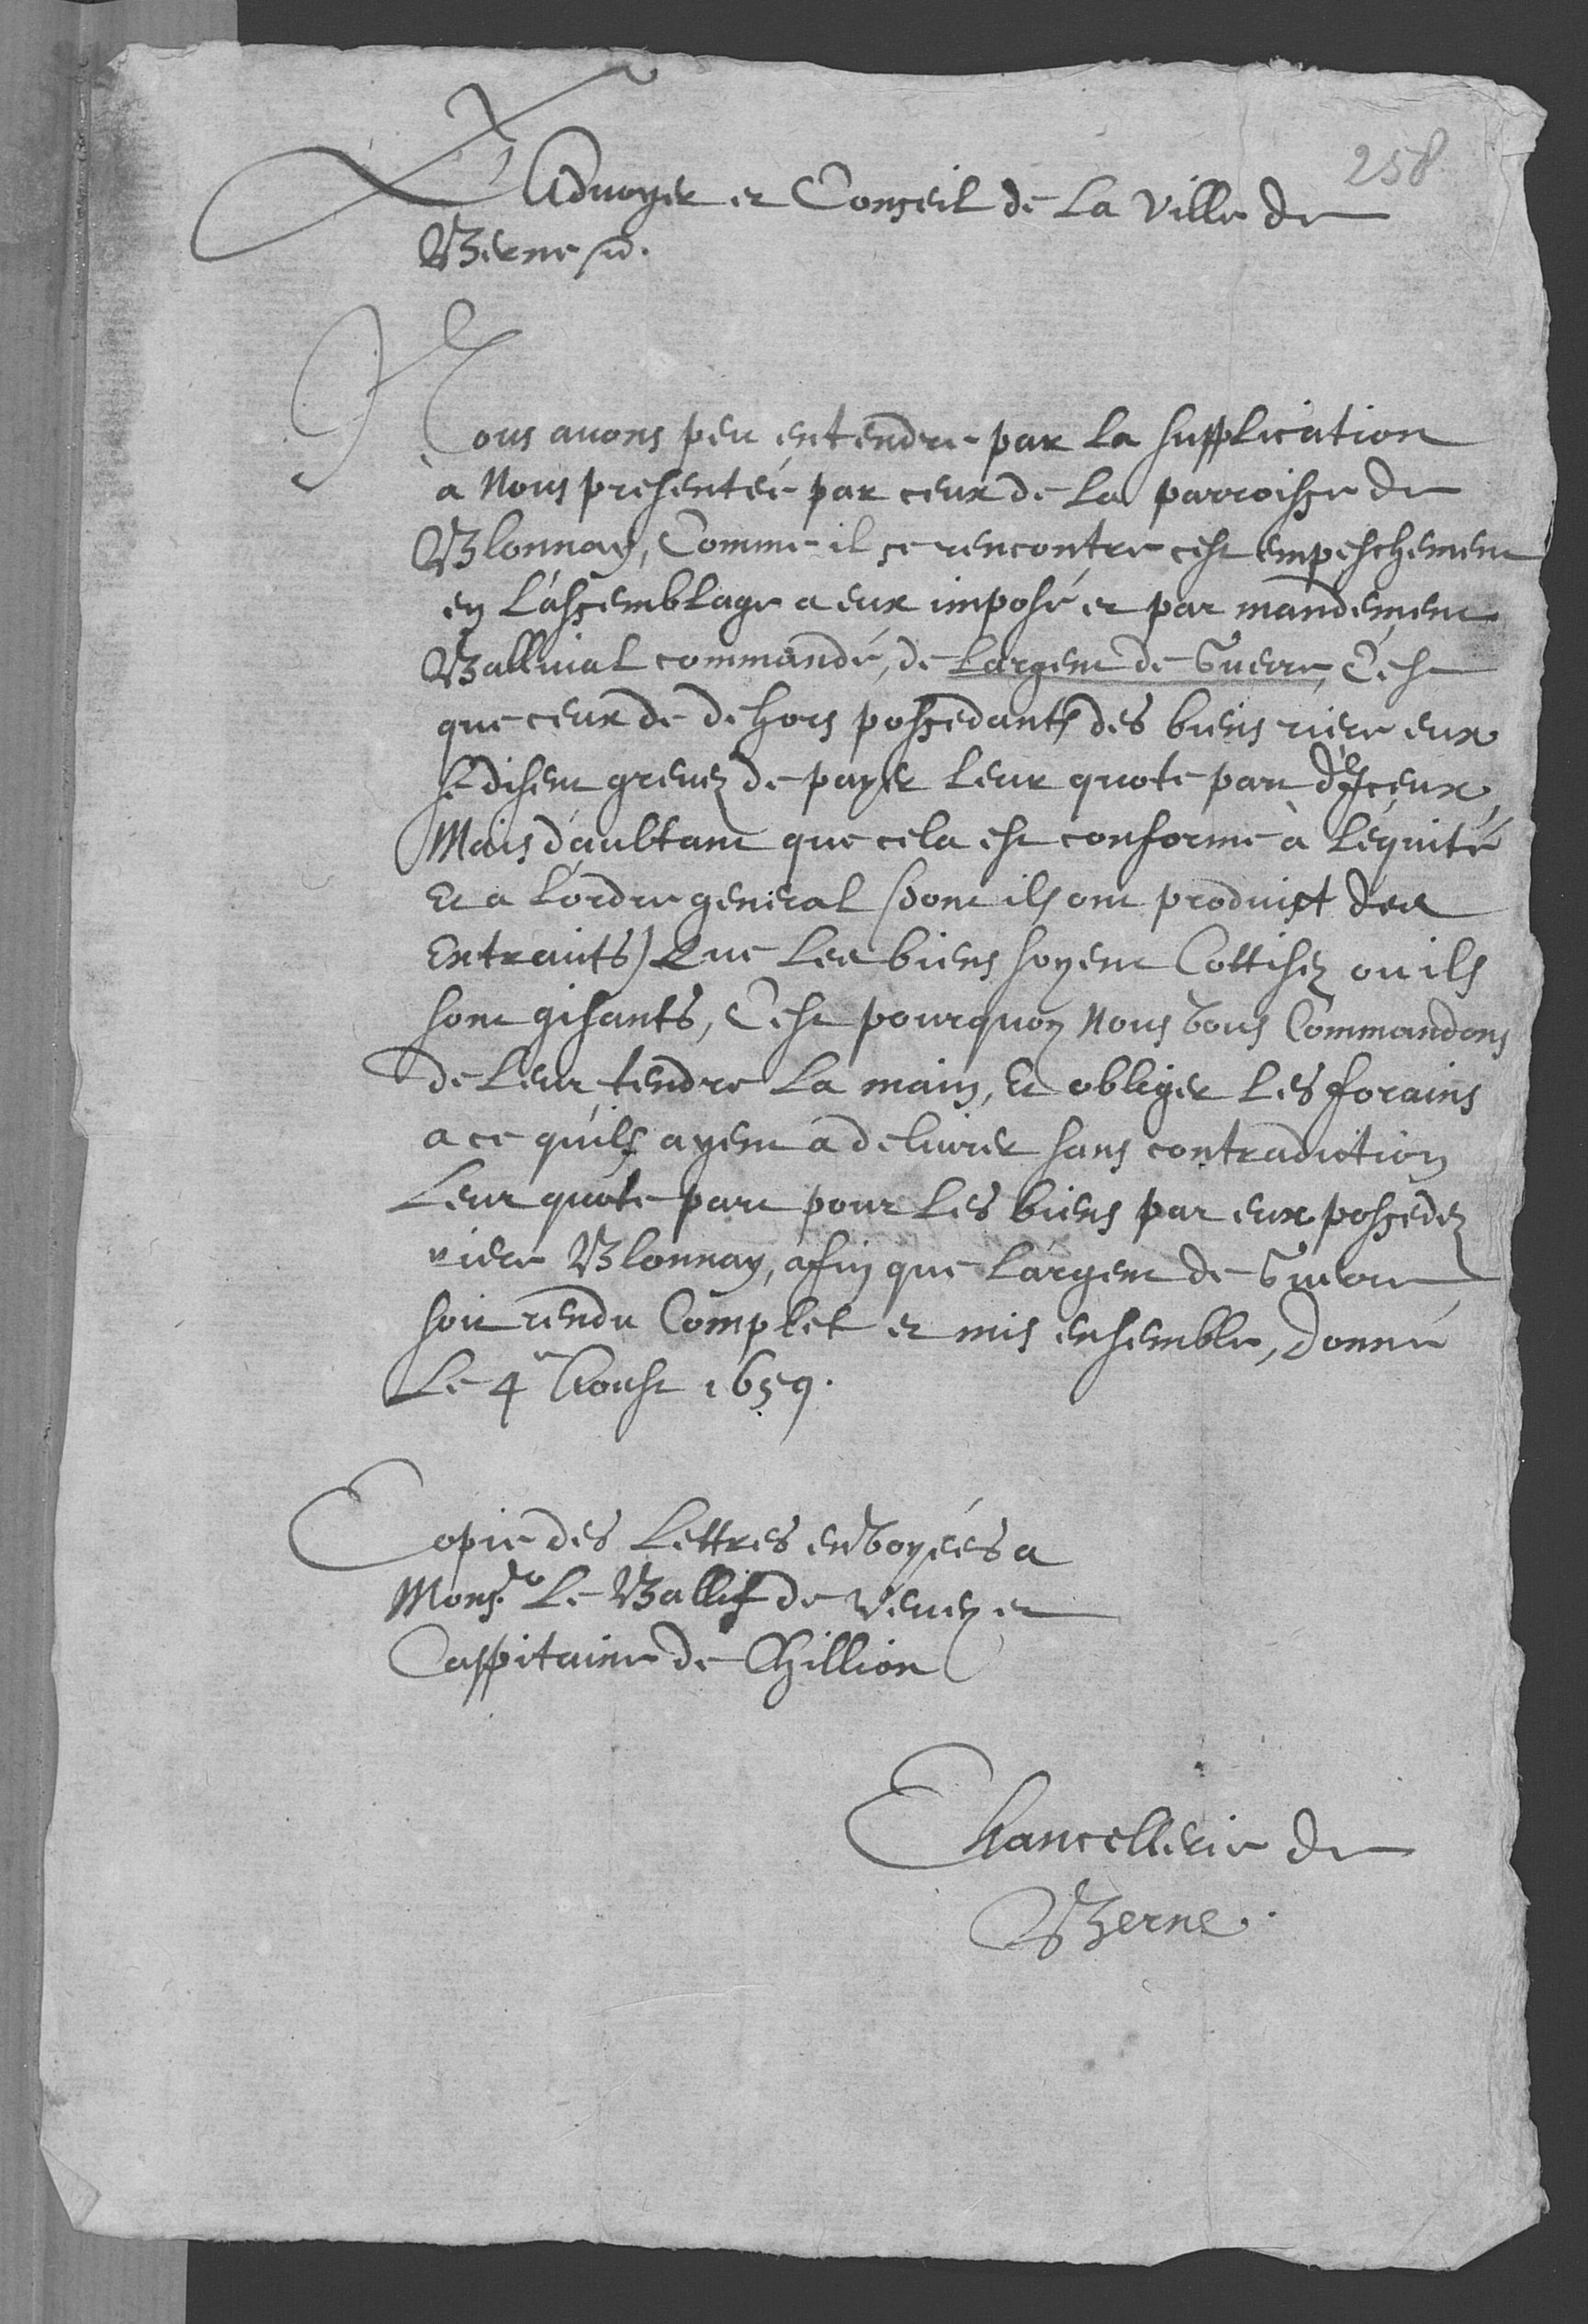 258
L'Aduoyer et Conseil de La Ville de
Berne sct.
Nous auons peu entendre par La supplication
a Nous presenteé par ceux de La parroisse de
Blonnay, Comme il se rencontre cest empeschement
en L'assemblage a eux imposé et par mandement
Balliuial commandé, de L'argent de Guerre, C'est
que ceux de dehors possedants des biens riere eux
se disent greuez de payer Leur quote part d'Iceux,
Mais d'aultant que cela est conforme à L'equité
Et a L'ordre general (dont ils ont produict des
Extraicts) Que Les biens soyent Cottisez ou ils
sont gisants, C'est pourquoy Nous vous Commandons
de Leur tendre La main, Et obliger Les forains
a ce qu'ils ayent a deliurer sans contradiction
Leur quote part pour Les biens par eux possedez
riere Blonnay, afin que L'argent de Guerre
soit rendu Complet et mis ensemble, Donné
Le 4e Aoust 1659.
Copie des Lettres envoyées a
Monsr. Le Ballif de Veuey et
Cappitaine de Chillion
Chancellerie de
Berne.